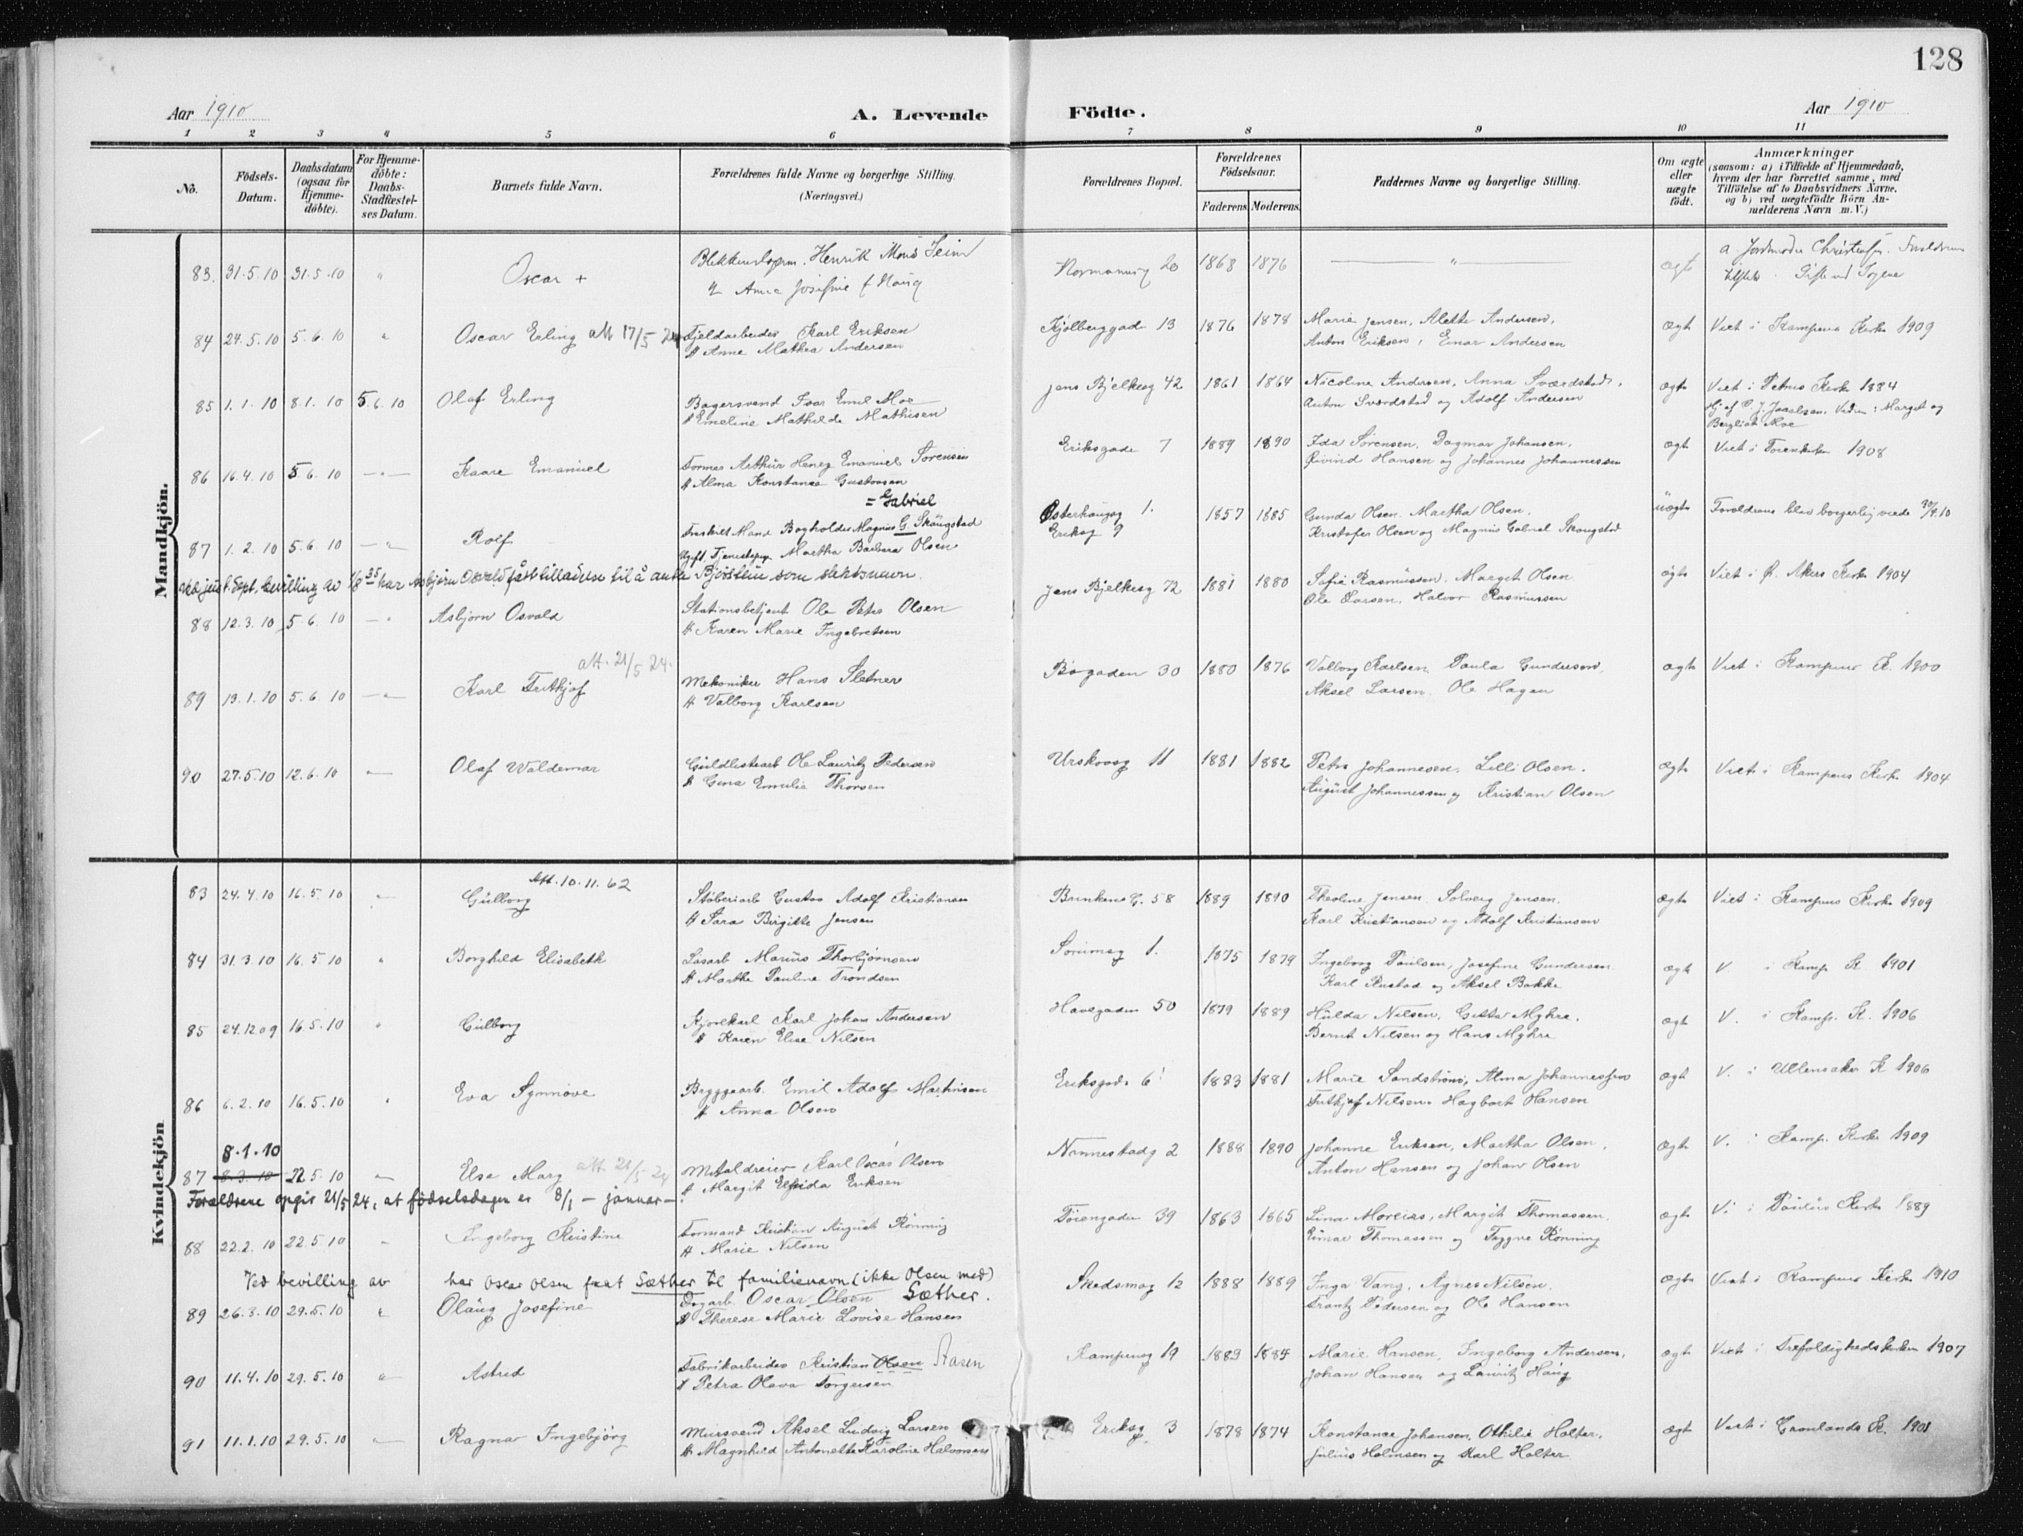 128
Aar 1910
A. Levende
Födte.
Aar 1910
1 2 3 4 5 6 7 8 9 10 11
No.
Födsels-Datum.
Daabsdatum (ogsaa for Hjemme-döbte).
For Hjemme-döbte: Daabs-Stadfæstel-ses Datum.
Barnets fulde Navn.
Forældrenes fulde Navne og borgerlige Stilling. (Næringsvei.)
Forældrenes Bopæl.
Forældrenes Födselsaar.
Faderens. Moderens.
Faddernes Navne og borgerlige Stilling.
Om ægte eller uægte födt.
Anmærkninger
(saasom: a) i Tilfælde af Hjemmedaab, hvem der har forrettet samme, med Tilföielse af to Daabsvidners Navne. og b) ved uægtefödte Börn An-melderens Navn m. V.)
Mandkjön.
83. 31.5.10 31.5.10 " Oscar + Henrik Mons Seim Normannsg 20 1868 1876 " ægt
& Anna Josefine f Haug
84 24.5.10 5.6.10 " Oscar Erling att 17/5 24 Fjeldarbeider Karl Eriksen Kjølberggade 13 1876 1878 Marie Jensen, Alette Andersen, ægte Viet i Kampens Kirke 1909
H Anne Mathea Andersen Anton Eriksen, Einar Andersen
85 1.1.10 8.1.10 5.6.10 Olaf Erling Bagersvend Ivar Emil Moe Jens Bjelkesg 42 1861 1864 Nicoline Andersen, Anna Sværdstad, ægte Viet i Petrus Kirke 1884
H Emeline Mathilde Mathisen Anton Sværdstad og Adolf Andersen
Margit og Bergliot Moe
86 16.4.10 5.6.10 Kaare Emanuel Former Arthur Henry Emanuel Sørensen Eriksgade 7 1889 1890 Ida Sørensen, Dagmar Johansen, ægte Viet i Tøienkirken 1908
H Alma Konstanse Gustavsen Øivind Hansen og Johannes Johannessen
= Gabriel
87 1.2.10 5.6.10 Rolf Fraskilt Mand Bogholder Magnus G. Skaugstad Østerhaugsg 1. Eriksg 9 1857 1885 Gunda Olsen, Martha Olsen, uægte Forældrene blev borgerlig viede 30/9.10
Ugift Tjenestepige Martha Barbara Olsen Kristofer Olsen og Magnus Gabriel Skaugstad
Ved just. dept. bevilling av 1/8 35 har Asbjørn Osvald fått tilladelse til å anta Bjøstlin som slektsnavn.
88 12.3.10 5.6.10 Asbjørn Osvald Stationsbetjent Ole Peter Olsen Jens Bjelkesg 72 1881 1880 Sofie Rasmussen, Margit Olsen ægte Viet i Ø. Akers Kirke 1904
H Karen Marie Ingebretsen Ole Larsen, Halvor Rasmussen
att. 21/5 24.
89 13.1.10 5.6.10 Karl Fritkjof Mekaniker Hans Sletner Bøgaden 30 1880 1876 Valborg Karlsen, Paula Gundersen, ægte Viet i Kampens K. 1900
H Valborg Karlsen Aksel Larsen, Ole Hagen
90 27.5.10 12.6.10 Olaf Waldemar Guldlistearb Ole Lauritz Pedersen Urskovsg 11 1881 1882 Petra Johannesen, Lilli Olsen, ægte Viet i Kampens Kirke 1904
H Gina Emilie Thorsen August Johannessen og Kristian Olsen
Kvindekjön
Att. 10.11.62
83 24.4.10 16.5.10 " Gulborg Støberiarb Gustav Adolf Kristiansen Brinkens G. 58 1889 1890 Theoline Jensen, Solveig Jensen, ægte Viet i Kampens Kirke 1909
H Sara Birgitte Jensen Karl Kristiansen og Adolf Kristiansen
84 31.3.10 16.5.10 " Borghild Elisabeth Løsarb Marius Thorbjørnsen Sørumsg 1. 1875 1879 Ingeborg Paulsen, Josefine Gundersen ægte V. i Kamp. K. 1901
H Marthe Pauline Trondsen Karl Rustad og Aksel Bakke
85 24.12.09 16.5.10 " Gulborg Kjørekarl Karl Johan Andersen Havegaden 50 1879 1889 Hulda Nilsen, Gitta Myhre, ægte V. i Kamp. K. 1906
H Karen Elise Nilsen Bernt Nilsen og Hans Myhre
86 6.2.10 16.5.10 " Eva Synnøve Bryggearb. Emil Adolf Martinsen Eriksgade 6 1883 1881 Marie Sandstrøm, Alma Johannessen ægte V. i Ullensaker K 1906
H Anna Olsen Fritkjof Nilsen, Hagbart Hansen
8.1.10
87 8.3.10 22.5.10 Else Marg att. 21/5-24 Metaldreier Karl Oscar Olsen Nannestadg 2 1888 1890 Johanne Eriksen, Martha Olsen, ægte V. i Kamp. Kirke 1909
H Margit Elfrida Eriksen Anton Hansen og Johan Olsen
Forældrene opgir 21/5 24, at fødselsdagen er 8/1 - januar -
88 22.2.10 22.5.10 Ingeborg Kristine Formand Kristian August Rønning Tøiengaden 39 1863 1865 Lina Moreits, Margit Thomassen, ægte V. i Paulus Kirke 1889
H Marie Nilsen Einar Thomassen og Trygve Rønning
Ved bevilling av har Oscar Olsen faat Sæther til familienavn (ikke Olsen med)
89 26.3.10 29.5.10 Olaug Josefine Dagarb. Oscar Olsen Sæther. Skedsmog 12 1888 1889 Inga Vang, Agnes Nilsen, ægte Viet i Kampens Kirke 1910
H Therese Marie Lovise Hansen Frantz Pedersen og Ole Hansen
90 11.4.10 29.5.10 Astrid Fabrikarbeider Kristian Olsen Aasen Kampensg 19 1883 1884 Marie Hansen, Ingeborg Andersen, ægte Viet i Trefoldighedskirken 1907
H Petra Olava Torgersen Johan Hansen og Lauritz Haug
91 11.1.10 29.5.10 Ragna Ingebjørg Mursvend Aksel Ludvig Larsen Eriksg 3 1878 1874 Konstanse Johansen, Othilie Holter, ægt Viet i Grønlands K. 1901
H Magnhild Antonette Karoline Halvorsen Julius Holmsen og Karl Holter